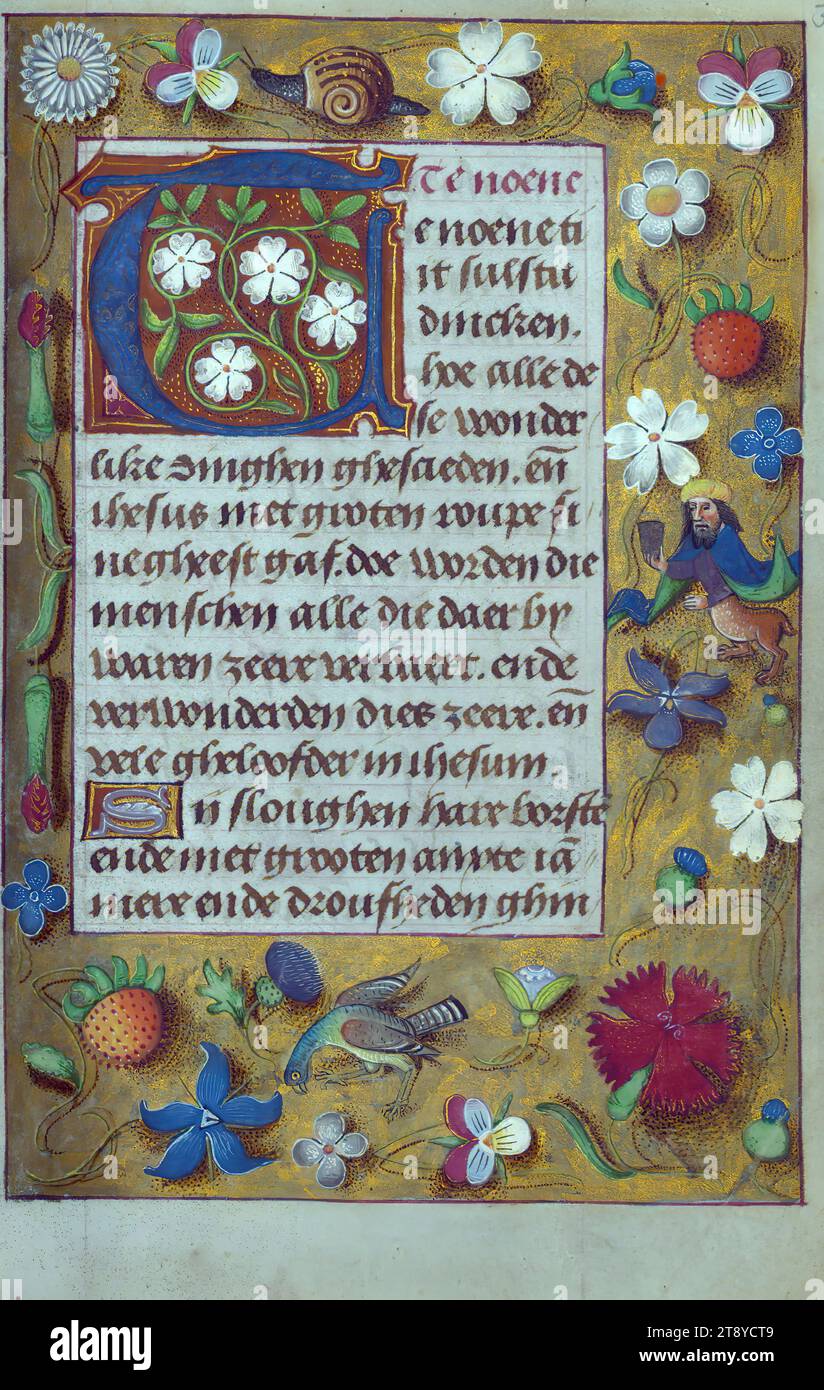 Te noene
Te noene ti
it sulstu
dincken.
hoe alle de
se wonder
like dinghen ghescieden. en̄
ihesus met groten roupe si
ne gheest gaf. doe worden die
menschen alle die daer by
waren zeere vervaert. ende
verwonderden dies zeere. en̄
vele gheloofder in ihesum
Si sloughen hare borste
ende met grooten
mere ende droufheden ghin
alamy
Image ID: 2T8YCT9
www.alamy.com